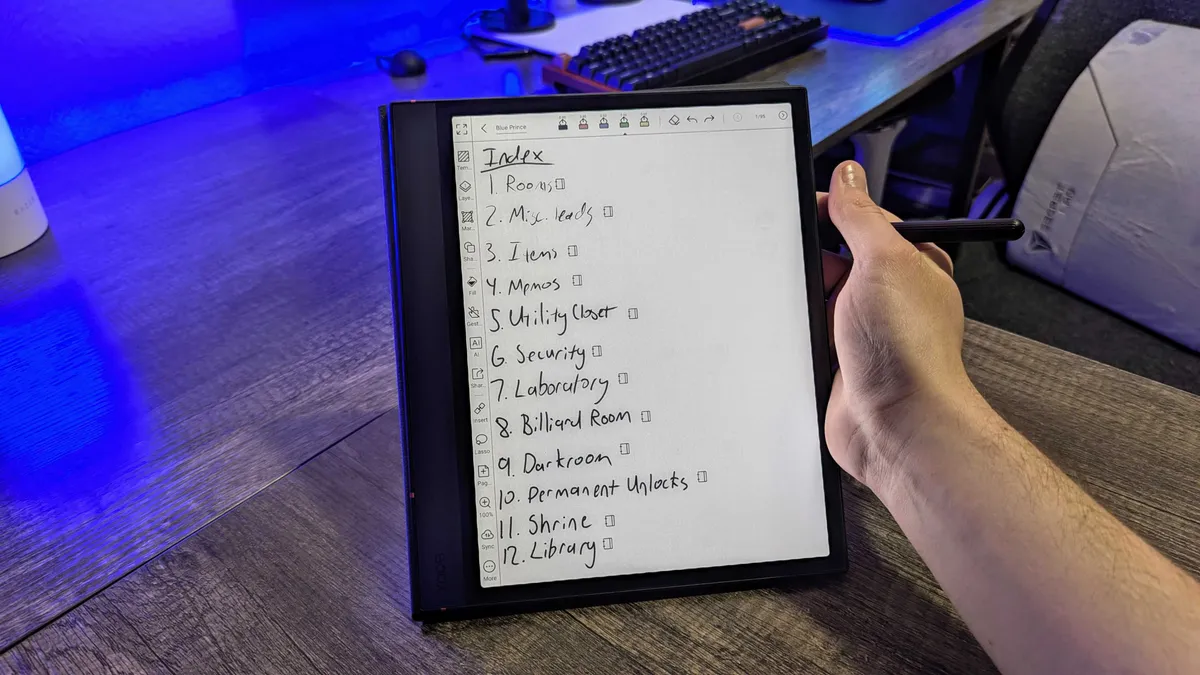 Blue Prince
1/35
Index
1. Rooms
2. Misc. leads
3. Items
4. Memos
5. Utility Closet
6. Security
7. Laboratory
8. Billiard Room
9. Darkroom
10. Permanent Unlocks
11. Shrine
12. Library
Tem...
Laye...
Mar...
Sha...
Fill
Gest...
AI
AI
Shar...
Insert
Lasso
Pag...
100%
Sync
More
BOOX
RAZER